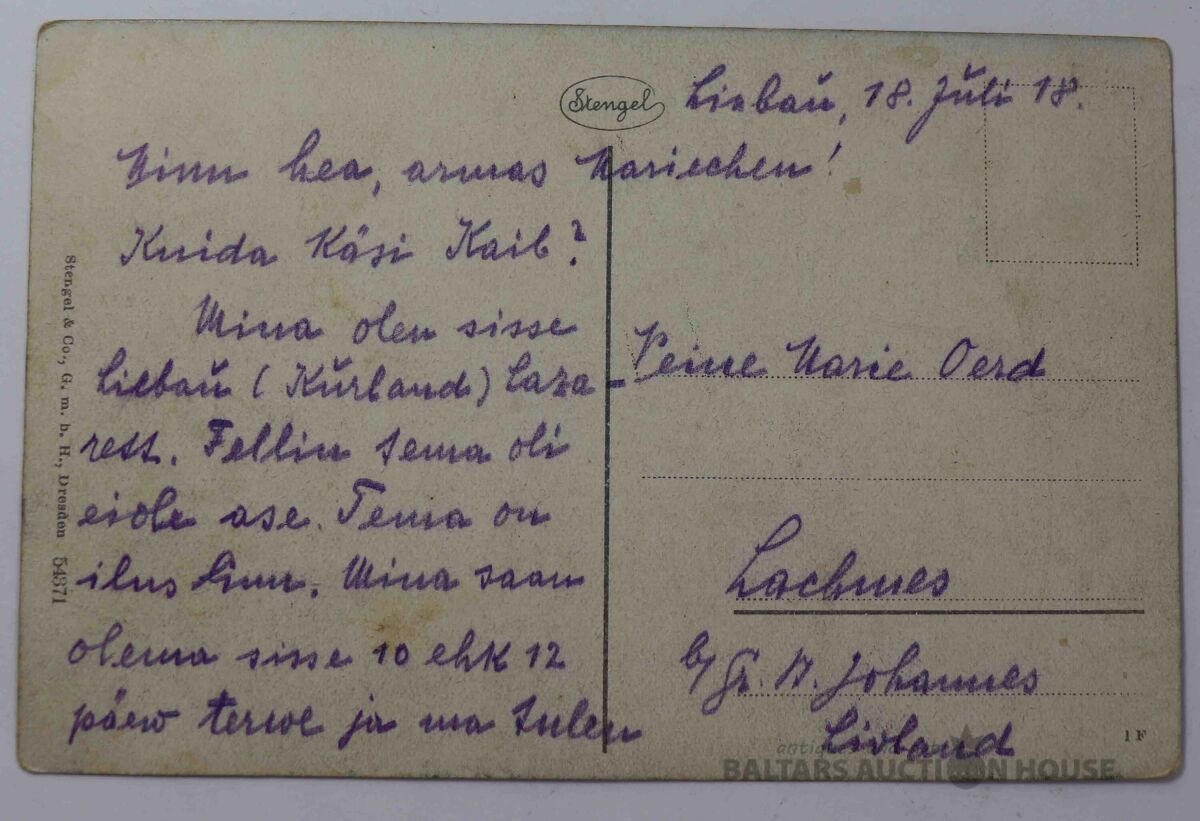 Stengel
Liebaŭ, 18. Jŭli 18.
Minu hea, armas Mariechen!
Kuida Käsi Kaib?
Mina olen sisse
Liebaŭ (Kŭrland) Laza-
rett. Fellin tema oli
eiole ase. Tema on
ilus linn. Mina saan
olema sisse 10 ehk 12
päew terwe ja ma tulen
Marie Oerd
Lachmes
Johannes
Livland
Stengel & Co., G. m. b. H., Dresden 54371
1 F
BALTARS AUCTION HOUSE